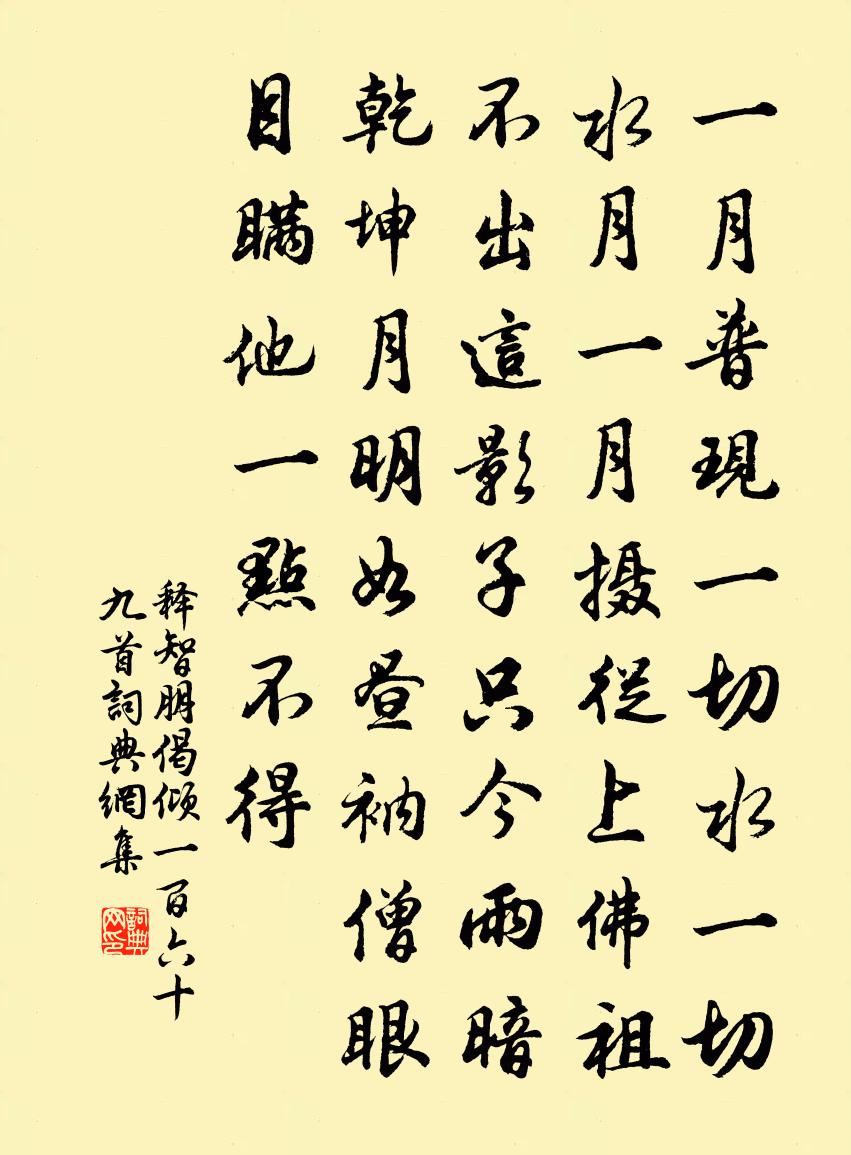 一月普現一切水一切
水月一月摄從上佛祖
不出這影子只今雨暗
乾坤月明如昼衲僧眼
目瞞他一點不得
释智朋偈倾一百六十
九首詞典網集
詞典网印